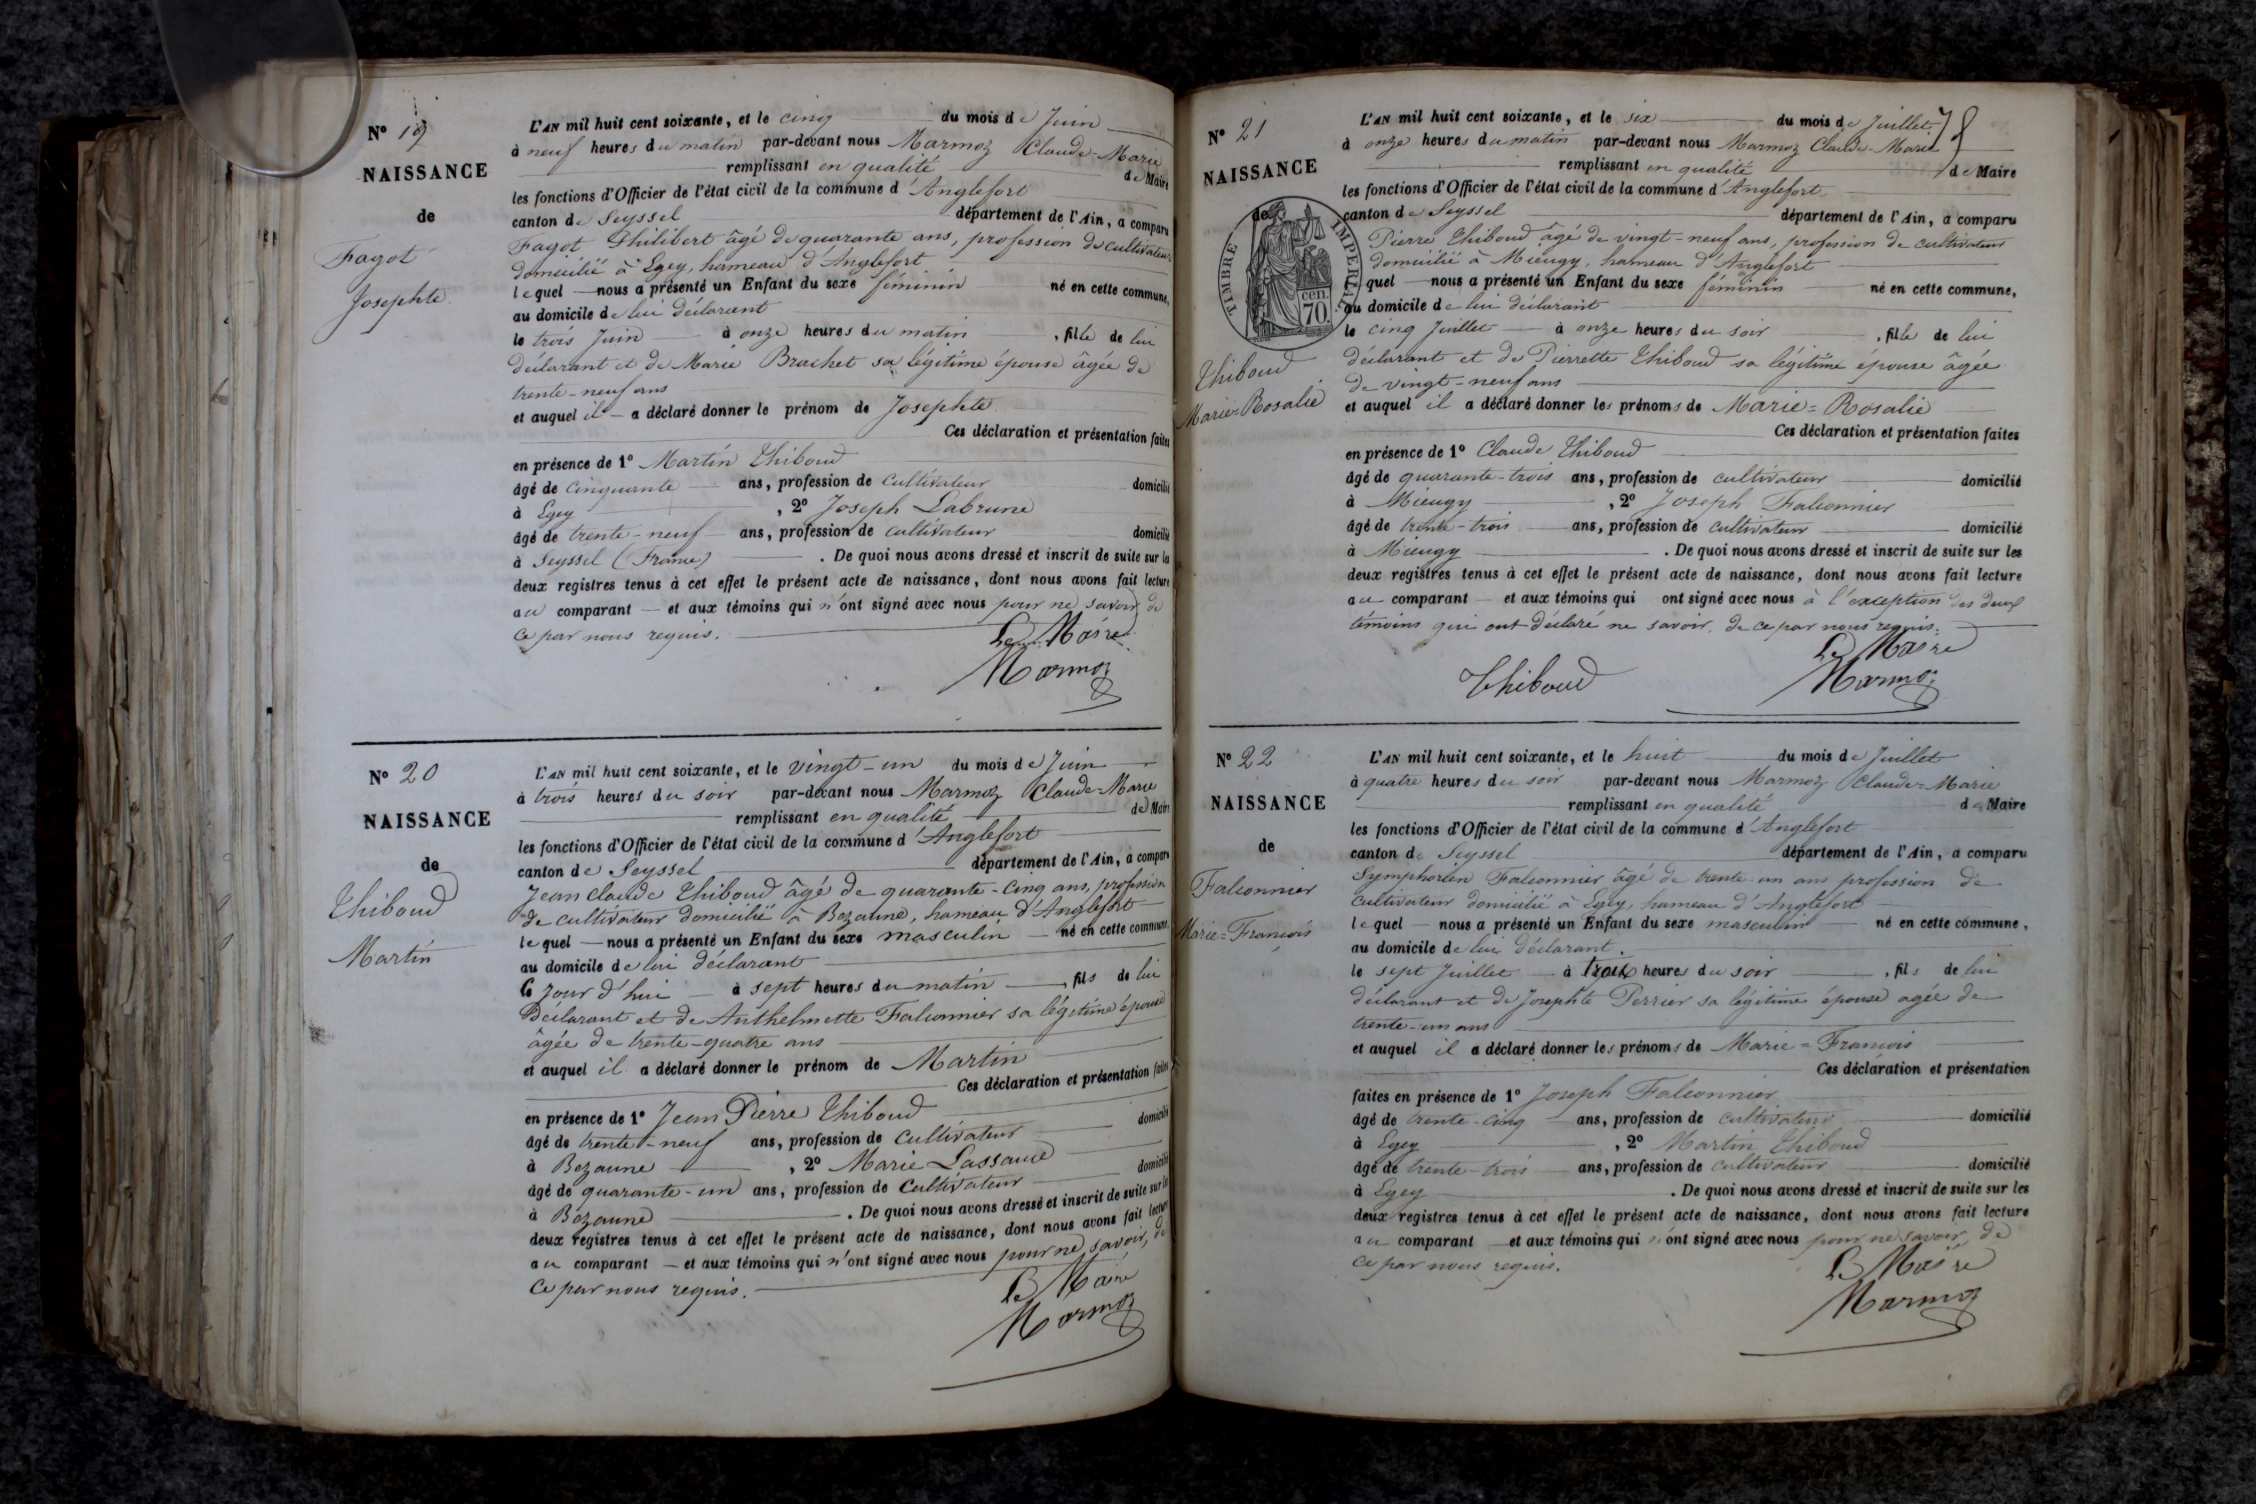 N° 19
NAISSANCE
de
Fagot
Josephte
L'AN mil huit cent soixante, et le cinq du mois de Juin
à neuf heures du matin par-devant nous Marmoz Claude-Marie
remplissant en qualité de Maire
les fonctions d'Officier de l'état civil de la commune d'Anglefort
canton de Seyssel département de l'Ain, a comparu
Fagot Philibert âgé de quarante ans, profession de cultivateur
domicilié à Egey, hameau d'Anglefort
lequel nous a présenté un Enfant du sexe féminin né en cette commune,
au domicile de lui déclarant
le trois Juin à onze heures du matin, fille de lui
déclarant et de Marie Brachet sa légitime épouse âgée de
trente-neuf ans
et auquel il a déclaré donner le prénom de Josephte
Ces déclaration et présentation faites
en présence de 1° Martin Thiboud
âgé de cinquante ans, profession de cultivateur domicilié
à Egey, 2° Joseph Labrune
âgé de trente-neuf ans, profession de cultivateur domicilié
à Seyssel (France). De quoi nous avons dressé et inscrit de suite sur les
deux registres tenus à cet effet le présent acte de naissance, dont nous avons fait lecture
au comparant et aux témoins qui n'ont signé avec nous pour ne savoir de
ce par nous requis.
Le Maire
Marmoz
N° 20
NAISSANCE
de
Thiboud
Martin
L'AN mil huit cent soixante, et le vingt-un du mois de Juin
à trois heures du soir par-devant nous Marmoz Claude-Marie
remplissant en qualité de Maire
les fonctions d'Officier de l'état civil de la commune d'Anglefort
canton de Seyssel département de l'Ain, a comparu
Jean Claude Thiboud âgé de quarante-cinq ans, profession
de cultivateur domicilié à Bezonne, hameau d'Anglefort
lequel nous a présenté un Enfant du sexe masculin né en cette commune
au domicile de lui déclarant
le jour d'hui à sept heures du matin, fils de lui
déclarant et de Anthelmette Falconnier sa légitime épouse
âgée de trente-quatre ans
et auquel il a déclaré donner le prénom de Martin
Ces déclaration et présentation faites
en présence de 1° Jean Pierre Thiboud
âgé de trente-neuf ans, profession de cultivateur domicilié
à Bezonne, 2° Marie Lassauce
âgé de quarante-un ans, profession de Cultivateur domicilié
à Bezonne. De quoi nous avons dressé et inscrit de suite sur les
deux registres tenus à cet effet le présent acte de naissance, dont nous avons fait lecture
au comparant et aux témoins qui n'ont signé avec nous pour ne savoir, de
ce par nous requis.
Le Maire
Marmoz
N° 21
NAISSANCE
de
TIMBRE IMPERIAL
70 cen.
Thiboud
Marie-Rosalie
L'AN mil huit cent soixante, et le six du mois de Juillet
à onze heures du matin par-devant nous Marmoz Claude-Marie
remplissant en qualité de Maire
les fonctions d'Officier de l'état civil de la commune d'Anglefort
canton de Seyssel département de l'Ain, a comparu
Pierre Thiboud âgé de vingt-neuf ans, profession de cultivateur
domicilié à Mieugy, hameau d'Anglefort
quel nous a présenté un Enfant du sexe féminin né en cette commune,
au domicile de lui déclarant
le cinq Juillet à onze heures du soir, fille de lui
déclarant et de Pierrette Thiboud sa légitime épouse âgée
de vingt-neuf ans
et auquel il a déclaré donner les prénoms de Marie=Rosalie
Ces déclaration et présentation faites
en présence de 1° Claude Thiboud
âgé de quarante-trois ans, profession de cultivateur domicilié
à Mieugy, 2° Joseph Falconnier
âgé de trente-trois ans, profession de cultivateur domicilié
à Mieugy. De quoi nous avons dressé et inscrit de suite sur les
deux registres tenus à cet effet le présent acte de naissance, dont nous avons fait lecture
au comparant et aux témoins qui ont signé avec nous à l'exception des deux
témoins qui ont déclaré ne savoir, de ce par nous requis.
Thiboud
Le Maire
Marmoz
N° 22
NAISSANCE
de
Falconnier
Marie=François
L'AN mil huit cent soixante, et le huit du mois de Juillet
à quatre heures du soir par-devant nous Marmoz Claude-Marie
remplissant en qualité de Maire
les fonctions d'Officier de l'état civil de la commune d'Anglefort
canton de Seyssel département de l'Ain, a comparu
Symphorien Falconnier âgé de trente-un ans profession de
cultivateur domicilié à Egey, hameau d'Anglefort
lequel nous a présenté un Enfant du sexe masculin né en cette commune,
au domicile de lui déclarant.
le sept Juillet à trois heures du soir, fils de lui
déclarant et de Josephte Perrier sa légitime épouse agée de
trente-un ans
et auquel il a déclaré donner les prénoms de Marie=François
Ces déclaration et présentation
faites en présence de 1° Joseph Falconnier
âgé de trente-cinq ans, profession de cultivateur domicilié
à Egey, 2° Martin Thiboud
âgé de trente-trois ans, profession de cultivateur domicilié
à Egey. De quoi nous avons dressé et inscrit de suite sur les
deux registres tenus à cet effet le présent acte de naissance, dont nous avons fait lecture
au comparant et aux témoins qui n'ont signé avec nous pour ne savoir, de
ce par nous requis.
Le Maire
Marmoz